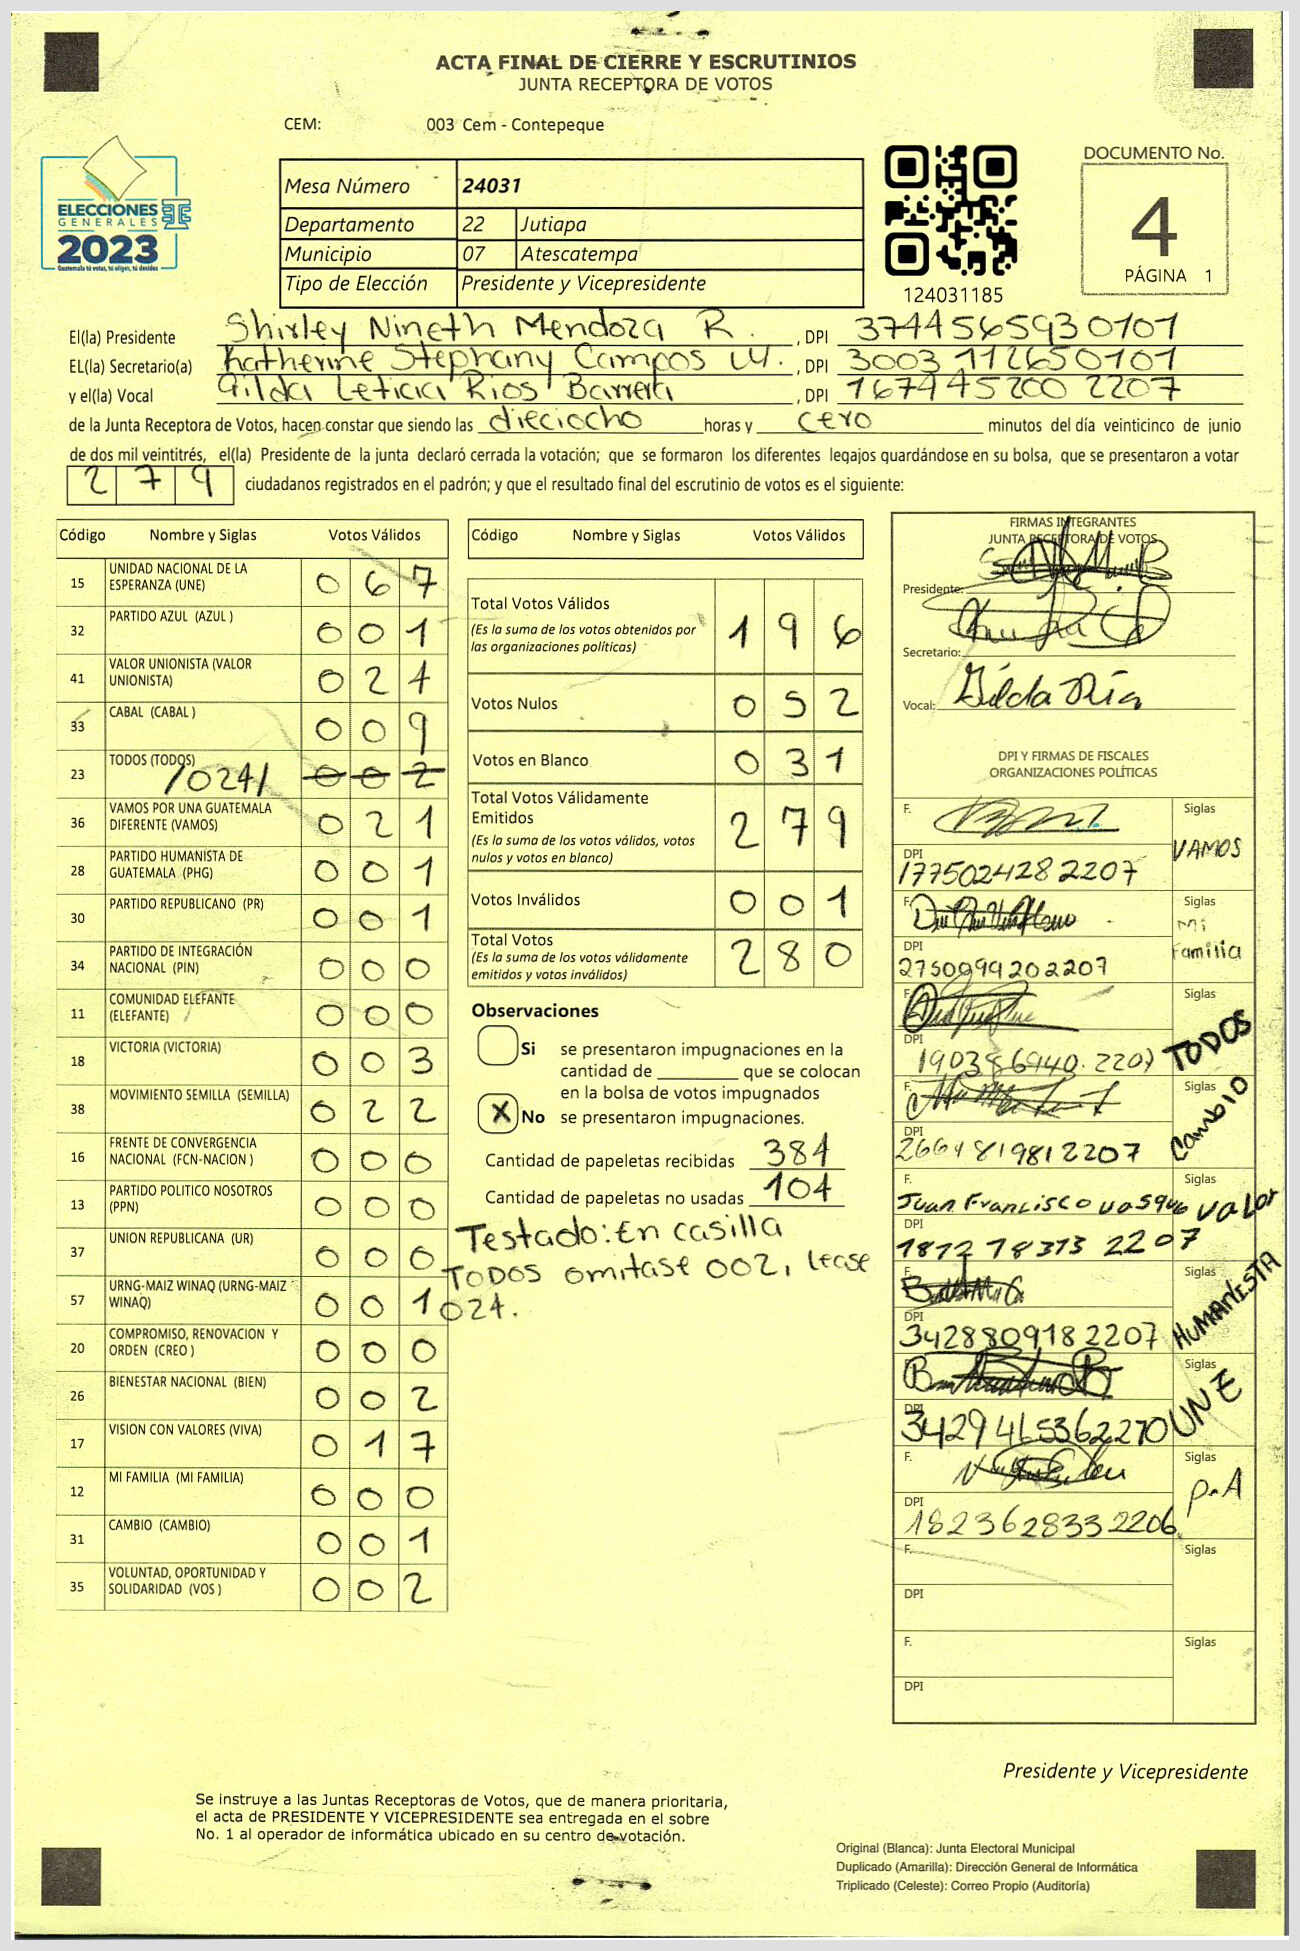 ACTA FINAL DE CIERRE Y ESCRUTINIOS
JUNTA RECEPTORA DE VOTOS
CEM: 003 Cem - Contepeque
ELECCIONES
GENERALES
2023
Guatemala tú votas, tú eliges, tú decides
Mesa Número 24031
Departamento 22 Jutiapa
Municipio 07 Atescatempa
Tipo de Elección Presidente y Vicepresidente
124031185
DOCUMENTO No.
4
PÁGINA 1
El(la) Presidente Shirley Nineth Mendoza R. , DPI 3744565930101
EL(la) Secretario(a) Katherine Stephany Campos , DPI 3003 112650101
y el(la) Vocal Gilda Leticia Rios Barrera , DPI 167445200 2207
de la Junta Receptora de Votos, hacen constar que siendo las dieciocho horas y cero minutos del día veinticinco de junio
de dos mil veintitrés, el(la) Presidente de la junta declaró cerrada la votación; que se formaron los diferentes legajos guardándose en su bolsa, que se presentaron a votar
2 7 9 ciudadanos registrados en el padrón; y que el resultado final del escrutinio de votos es el siguiente:
Código Nombre y Siglas Votos Válidos
15 UNIDAD NACIONAL DE LA ESPERANZA (UNE) 0 6 7
32 PARTIDO AZUL (AZUL ) 0 0 1
41 VALOR UNIONISTA (VALOR UNIONISTA) 0 2 4
33 CABAL (CABAL ) 0 0 9
23 TODOS (TODOS) /024/ 0 0 2
36 VAMOS POR UNA GUATEMALA DIFERENTE (VAMOS) 0 2 1
28 PARTIDO HUMANISTA DE GUATEMALA (PHG) 0 0 1
30 PARTIDO REPUBLICANO (PR) 0 0 1
34 PARTIDO DE INTEGRACIÓN NACIONAL (PIN) 0 0 0
11 COMUNIDAD ELEFANTE (ELEFANTE) 0 0 0
18 VICTORIA (VICTORIA) 0 0 3
38 MOVIMIENTO SEMILLA (SEMILLA) 0 2 2
16 FRENTE DE CONVERGENCIA NACIONAL (FCN-NACION ) 0 0 0
13 PARTIDO POLITICO NOSOTROS (PPN) 0 0 0
37 UNION REPUBLICANA (UR) 0 0 0
57 URNG-MAIZ WINAQ (URNG-MAIZ WINAQ) 0 0 1
20 COMPROMISO, RENOVACION Y ORDEN (CREO ) 0 0 0
26 BIENESTAR NACIONAL (BIEN) 0 0 2
17 VISION CON VALORES (VIVA) 0 1 7
12 MI FAMILIA (MI FAMILIA) 0 0 0
31 CAMBIO (CAMBIO) 0 0 1
35 VOLUNTAD, OPORTUNIDAD Y SOLIDARIDAD (VOS ) 0 0 2
Código Nombre y Siglas Votos Válidos
Total Votos Válidos 1 9 6
(Es la suma de los votos obtenidos por
las organizaciones políticas)
Votos Nulos 0 5 2
Votos en Blanco 0 3 1
Total Votos Válidamente
Emitidos 2 7 9
(Es la suma de los votos válidos, votos
nulos y votos en blanco)
Votos Inválidos 0 0 1
Total Votos 2 8 0
(Es la suma de los votos válidamente
emitidos y votos inválidos)
Observaciones
Si se presentaron impugnaciones en la
cantidad de ________ que se colocan
en la bolsa de votos impugnados
X No se presentaron impugnaciones.
Cantidad de papeletas recibidas 384
Cantidad de papeletas no usadas 104
Testado: En casilla
TODOS omitase 002, lease
024.
FIRMAS INTEGRANTES
JUNTA RECEPTORA DE VOTOS
Presidente:
Secretario:
Vocal: Gilda Ríos
DPI Y FIRMAS DE FISCALES
ORGANIZACIONES POLÍTICAS
F. Siglas VAMOS
DPI 1775024282207
F. Siglas Mi Familia
DPI 2750994202207
F. Siglas TODOS
DPI 190386940.2207
F. Siglas Cambio
DPI 2664819812207
F. Juan Francisco Siglas Valor
DPI 1872 78373 2207
F. Siglas HUMANISTA
DPI 3428809182207
F. Siglas UNE
DPI 3429465362270
F. Siglas P.A
DPI 1823628332206
F. Siglas
DPI
F. Siglas
DPI
Presidente y Vicepresidente
Se instruye a las Juntas Receptoras de Votos, que de manera prioritaria,
el acta de PRESIDENTE Y VICEPRESIDENTE sea entregada en el sobre
No. 1 al operador de informática ubicado en su centro de votación.
Original (Blanca): Junta Electoral Municipal
Duplicado (Amarilla): Dirección General de Informática
Triplicado (Celeste): Correo Propio (Auditoría)